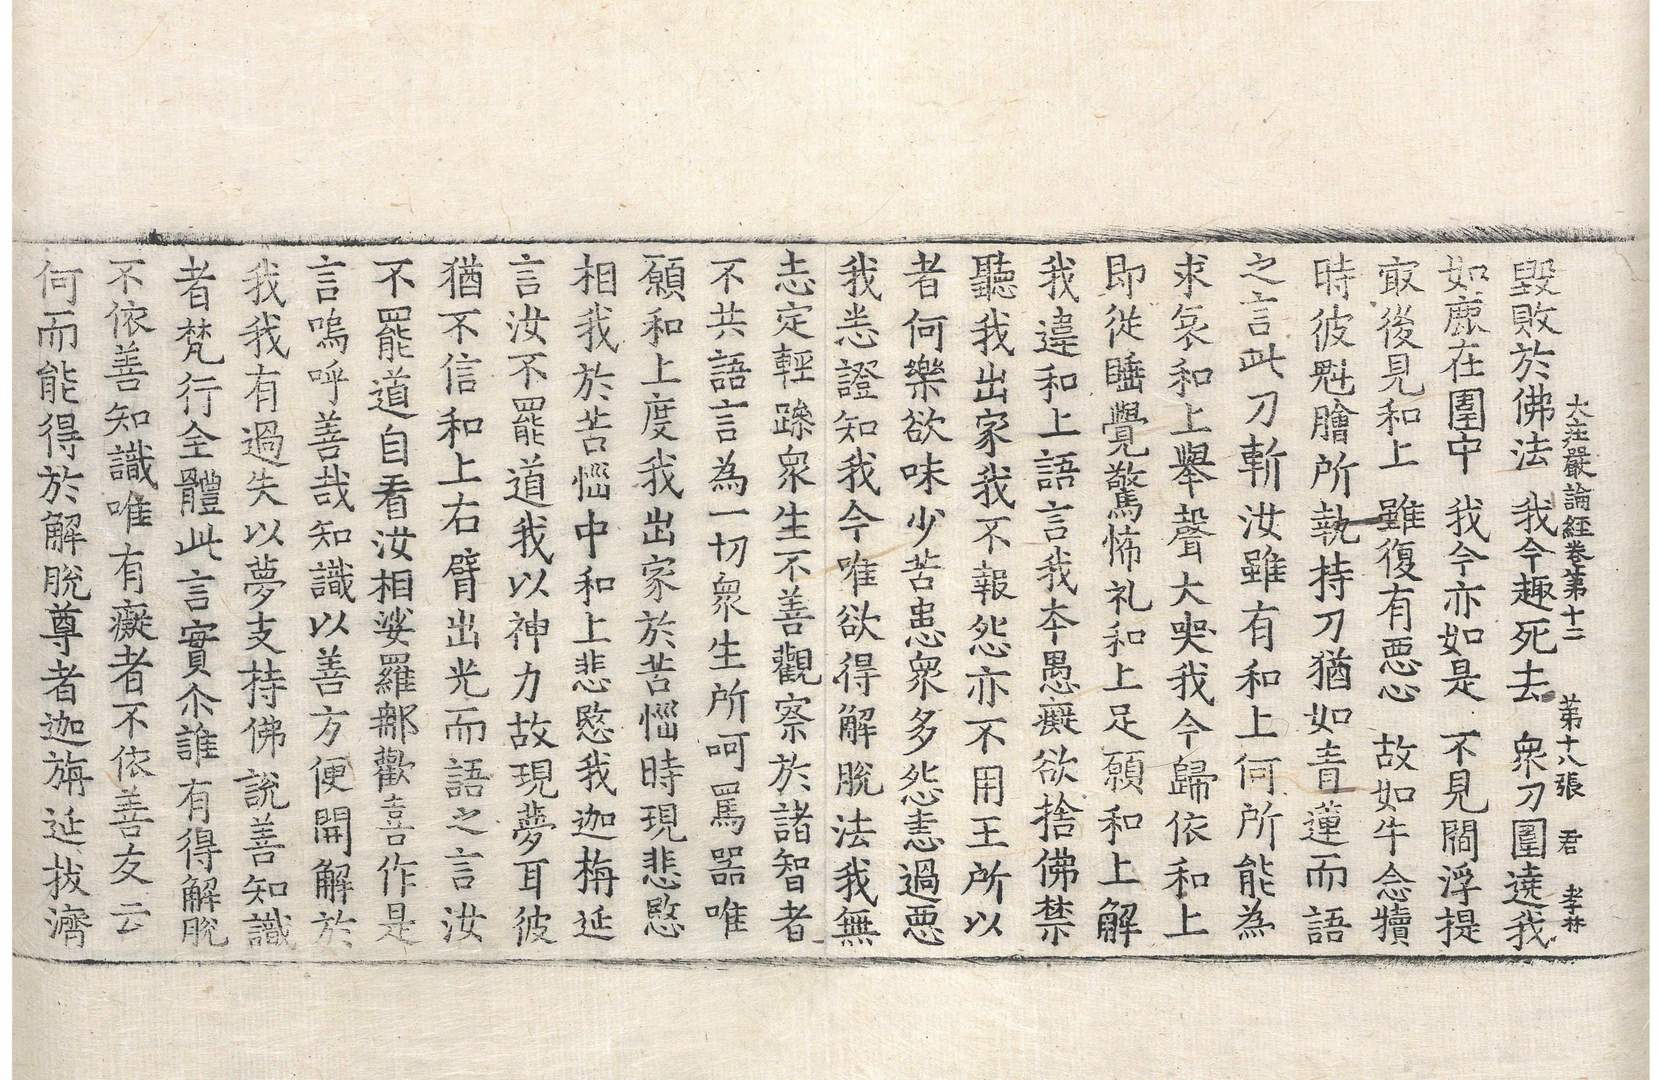 大莊嚴論經卷第十二　第十八張　君　孝林
毀敗於佛法　我今趣死去　衆刀圍遶我
如鹿在圍中　我今亦如是　不見閻浮提
㝡後見和上　雖復有惡心　故如牛念犢
時彼魁膾所執持刀猶如青蓮而語
之言此刀斬汝雖有和上何所能為
求哀和上舉聲大哭我今歸依和上
即從睡覺驚怖礼和上足願和上解
我違和上語言我本愚癡欲捨佛禁
聽我出家我不報怨亦不用王所以
者何樂欲味少苦患衆多怨恚過惡
我悉證知我今唯欲得解脫法我無
志定輕躁衆生不善觀察於諸智者
不共語言為一切衆生所呵罵器唯
願和上度我出家於苦惱時現悲愍
相我於苦惱中和上悲愍我迦栴延
言汝不罷道我以神力故現夢耳彼
猶不信和上右臂出光而語之言汝
不罷道自看汝相娑羅那歡喜作是
言嗚呼善哉知識以善方便開解於
我我有過失以夢支持佛說善知識
者梵行全體此言實尒誰有得解脫
不依善知識唯有癡者不依善友云
何而能得於解脫尊者迦旃延拔濟